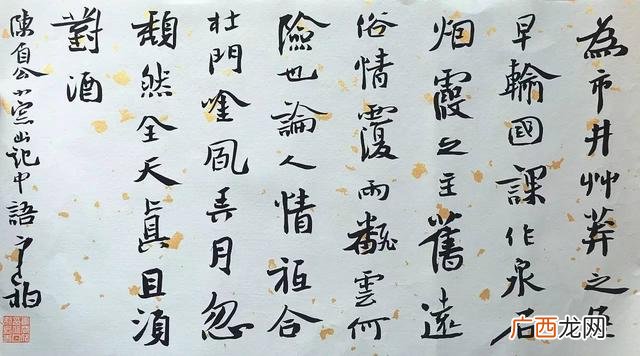 為市井艸莽之臣
早輸國課作泉石
烟霞之主舊遠
俗情覆雨翻雲何
險也論人情祗合
杜門唫風弄月忽
頹然全天真且須
對酒
陳眉公小窓幽記中語 柏
广西龙网